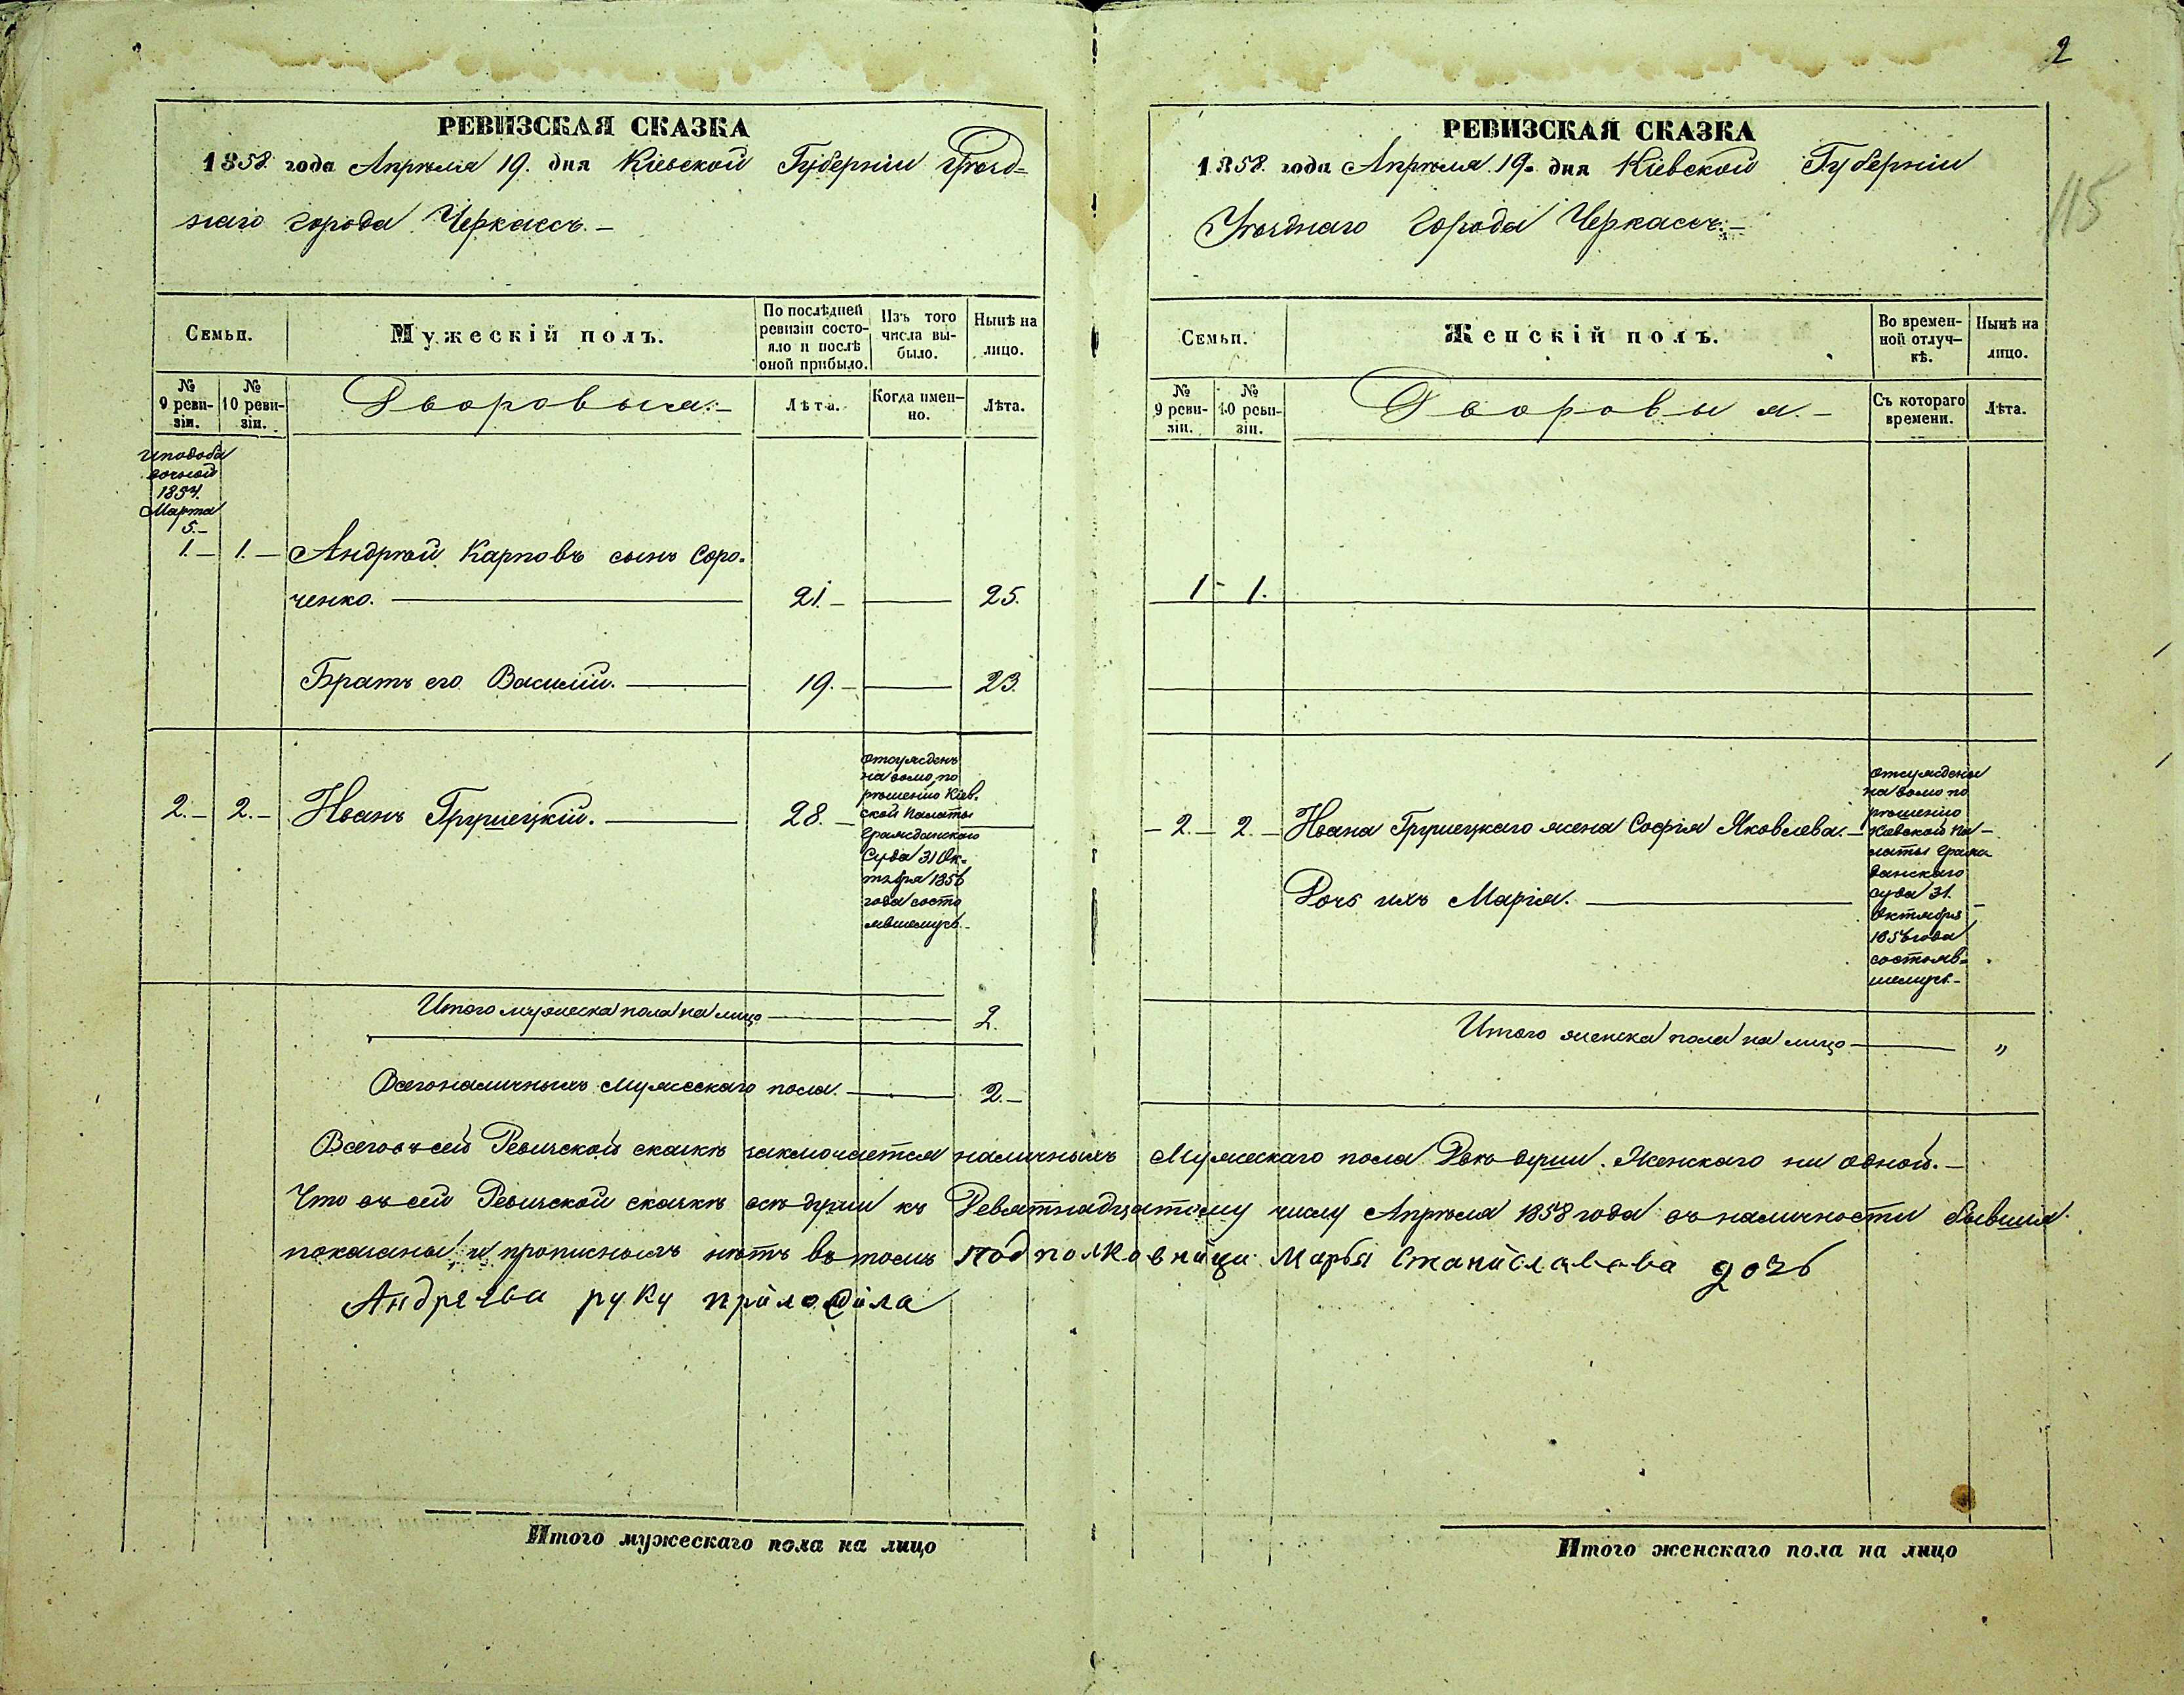 2
115
РЕВИЗСКАЯ СКАЗКА
1858. года Апрѣля 19. дня Кіевской Губерніи Уѣзд=
наго города Черкассъ.—
Семьи.
Мужескій полъ.
По послѣдней ревизіи состояло и послѣ оной прибыло.
Изъ того числа выбыло.
Нынѣ на лицо.
№ 9 ревизіи.
№ 10 ревизіи.
Дворовыя.—
Лѣта.
Когда именно.
Лѣта.
1854.
Марта
5.—
1.— 1.— Андрѣй Карповъ сынъ Соро-
ченко. 21.— 25.
Братъ его Василій. 19.— 23.
2.— 2.— Иванъ Грушецкій. 28.—
отсужденъ
на волю по
рѣшенію Кіев-
ской Палаты
Гражданскаго
Суда 31 Ок-
тября 1856
года состо
явшемусь.—
Итого мужеска пола на лицо 2.
Всего наличныхъ мужескаго пола. 2.—
РЕВИЗСКАЯ СКАЗКА
1858. года Апрѣля 19. дня Кіевской Губерніи
Уѣзднаго города Черкассъ.—
Семьи.
Женскій полъ.
Во временной отлучкѣ.
Нынѣ на лицо.
№ 9 ревизіи.
№ 10 ревизіи.
Дворовыя.—
Съ котораго времени.
Лѣта.
1 - 1.
— 2.— 2.— Ивана Грушецкаго жена Софія Яковлева.—
Дочь ихъ Марія.
отсуждены
на волю по
рѣшенію
Кіевской Па-
латы Граж-
данскаго
суда 31.
Октября
1856 года
состояв-
шемусь.—
Итого женска пола на лицо „
Всего въ сей Ревизской сказкѣ заключается наличныхъ Мужескаго пола Двѣ души. Женскаго ни одной.—
Что въ сей Ревизской сказкѣ всѣ души къ Девятнадцатому числу Апрѣля 1858 года въ наличности бывшія
показаны и прописныхъ нѣтъ въ томъ подполковница Марья Станиславова дочь
Андреева руку приложила
Итого мужескаго пола на лицо
Итого женскаго пола на лицо